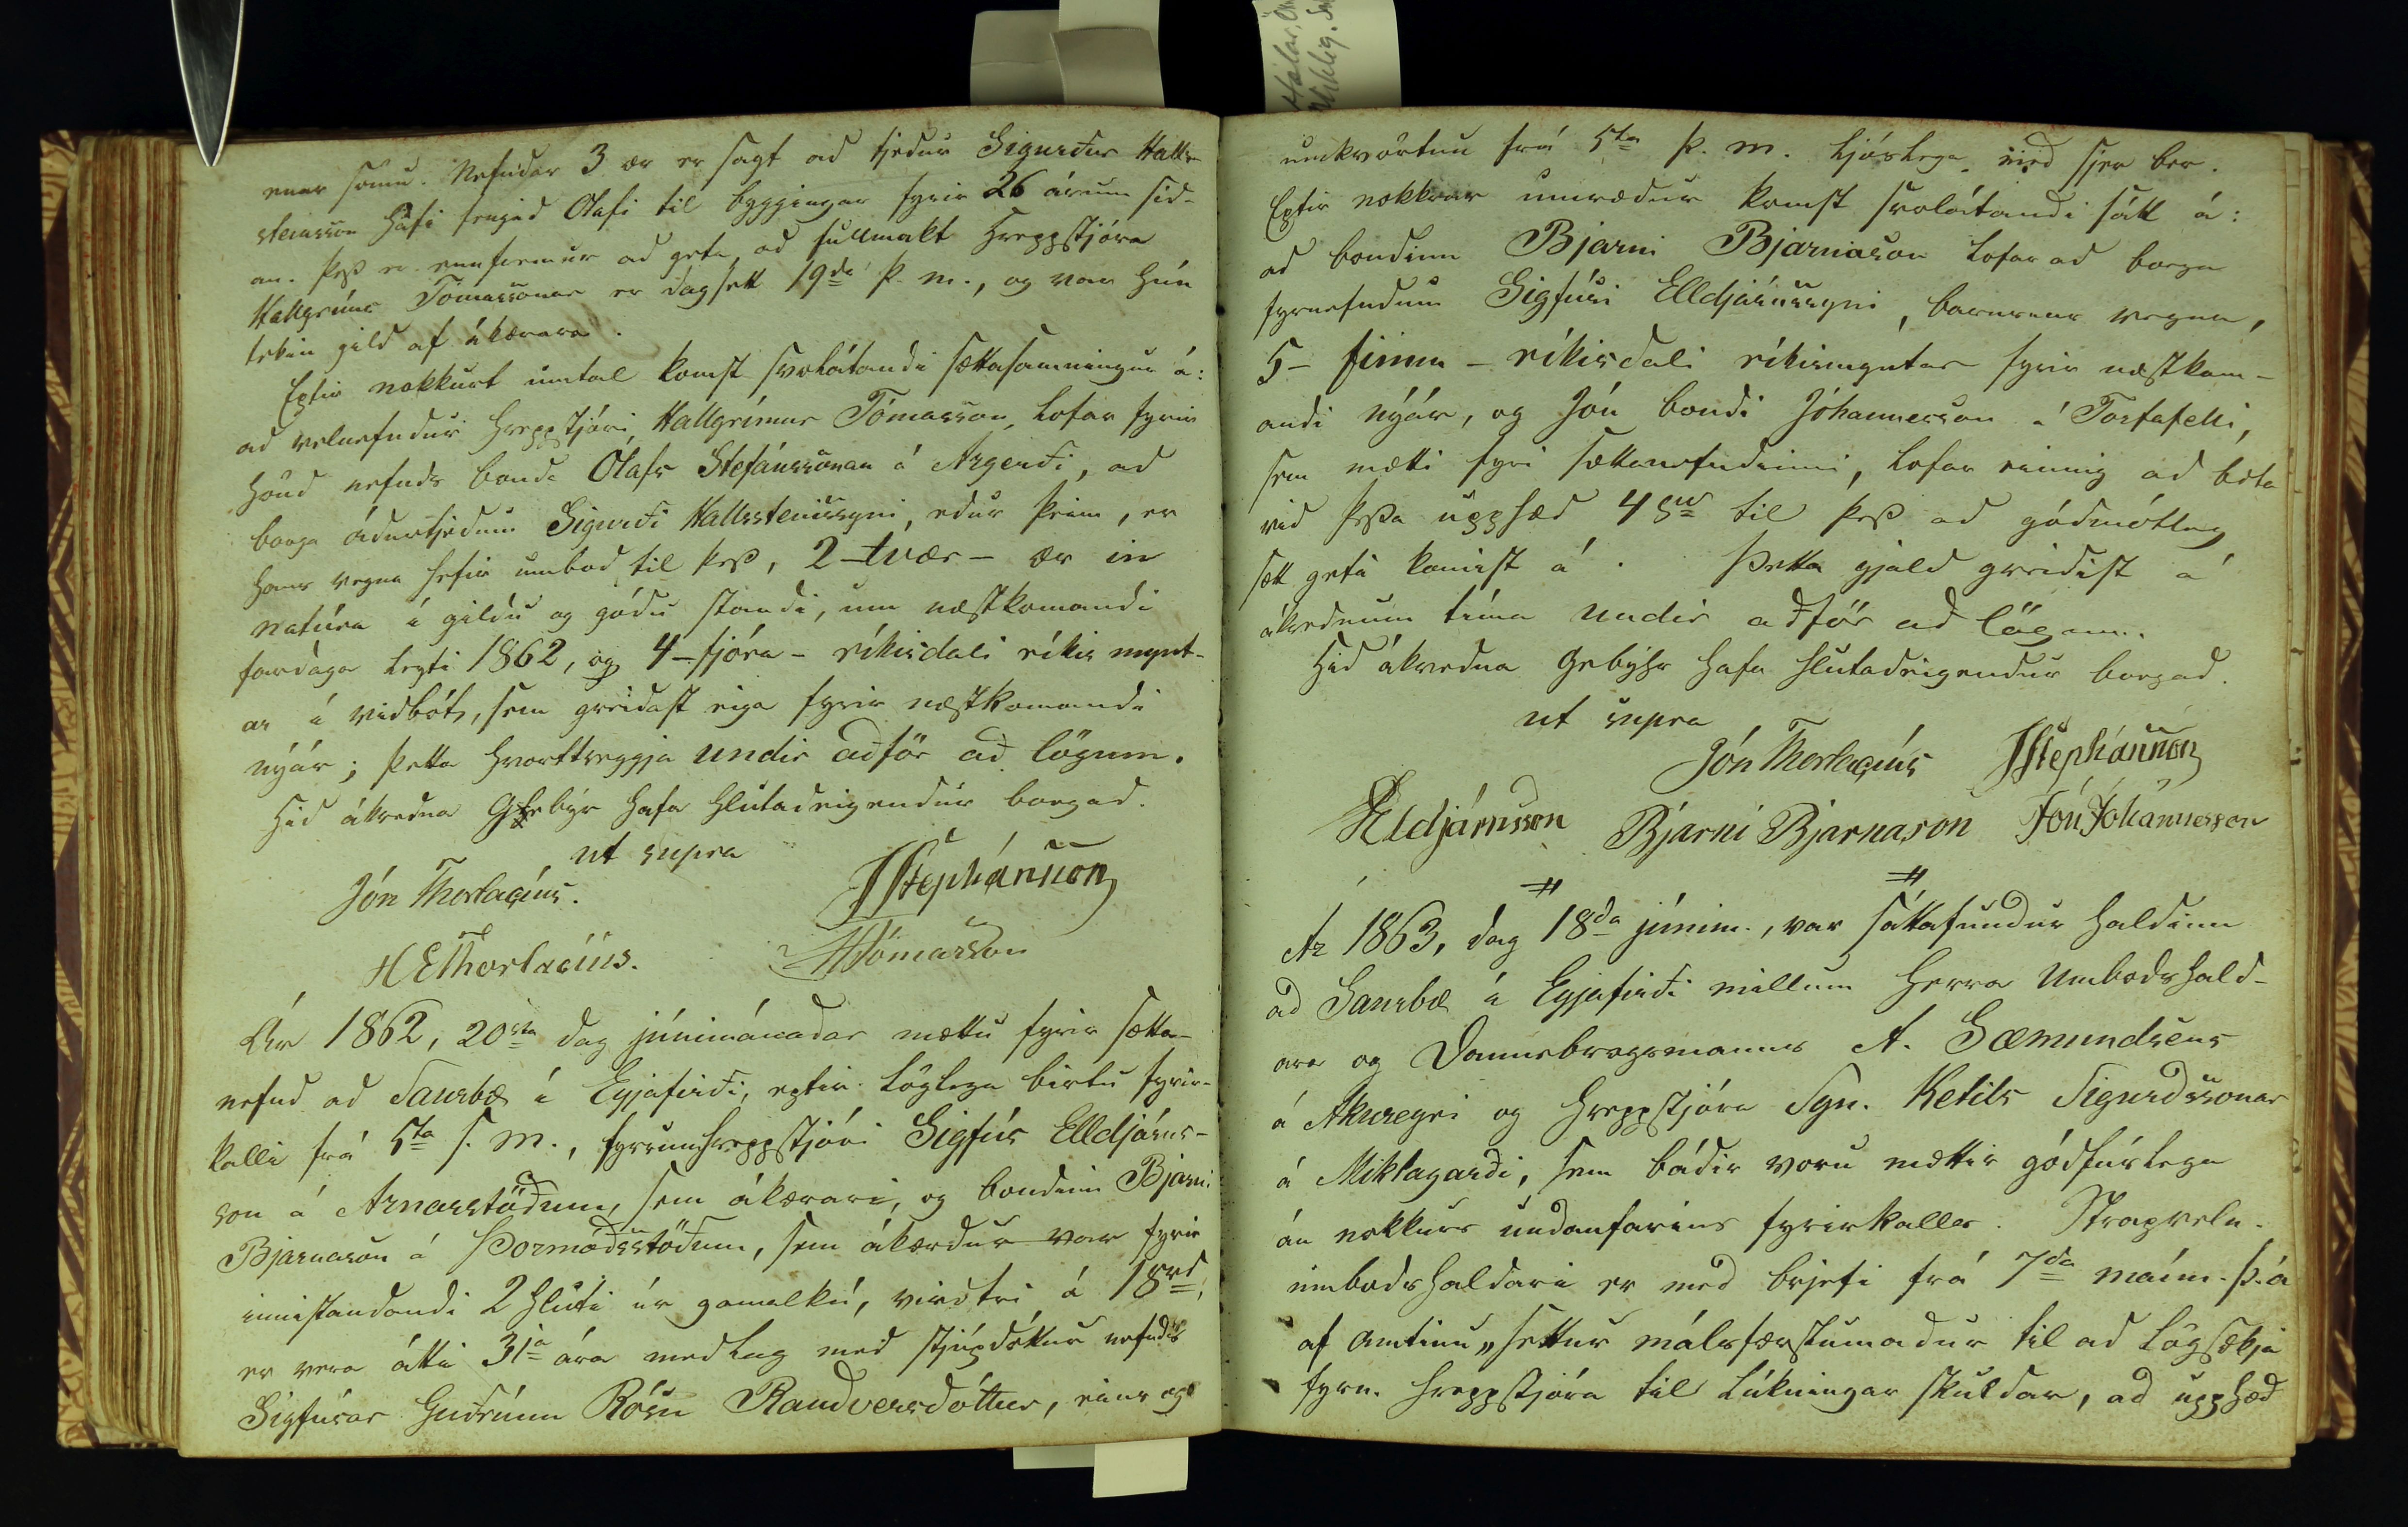 enar sömu. Nefndar 3 ær er sagt að tjeður Sigurður Hall-
steinsson hafi fengið Olafi til byggingar fyrir 26 árum síð-
an. Þess er ennfremur að geta, að fullmakt hreppstjóra
Hallgríms Tómassonar er dagsett 19da þ. m., og var hún
tekin gild af ákæranda.
Eptir nokkurt umtal komst svolátandi sættasamningur á:
að velnefndur hreppstjóri, Hallgrímur Tómasson, lofar fyrir
hönd nefnds bónda Olafs Stefánssonar á Argerði, að
borga áðurtjeðum Sigurði Hallssteinssyni, eður þeim, er
hans vegna hefir umboð til þess, 2 - tvær - ær in
natúra í gildu og góðu standi, um næstkomandi
fardaga leyti 1862, og 4 - fjóra - ríkisdali ríkis mynt-
ar í viðbót, sem greiðast eiga fyrir næstkomandi
nýár; þetta hvorttveggja undir aðför að lögum.
Hið ákveðna Gebýr hafa hlutaðeigendur borgað.
ut supra
Jón Thorlacíus. JStephánsson
HEThorlacíus. HTómasson
Ár 1862, 20sta dag júnímánaðar mættu fyrir sætta-
nefnd að Saurbæ í Eyjafirði, eptir löglega birtu fyrir-
kalli frá 5ta s. m., fyrrum hreppstjóri Sigfús Elldjárns-
son á Arnarstöðum, sem ákærari, og bóndinn Bjarni
Bjarnason á Þormóðsstöðum, sem ákærður var fyrir
innistandandi 2 hluti úr gamalkú, virðtri á 18rd,
er vera átti 31a ára meðlag með stjúpdóttur nefnds
Sigfúsar Guðrúnu Rósu Randversdóttur, eins og
umkvörtun frá 5ta þ. m. ljóslega með sjer ber.
Eptir nokkrar umræður komst svolátandi sátt á:
að bóndinn Bjarni Bjarnason lofar að borga
fyrnefndum Sigfúsi Elldjárnssyni, barnsins vegna,
5 - fimm - ríkisdali ríkismyntar fyrir næstkom-
andi nýár, og Jón bóndi Jóhannesson á Torfafelli,
sem mætti fyri sættanefndinni, lofar einnig að bæta
við þessa upphæð 4 til þess að góðmótleg
sætt geti komist á. Þetta gjald greiðist á
ákveðnum tíma undir aðför að lögum.
Hið ákveðna Gebýhr hafa hlutaðeigendur borgað.
ut supra
Jón Thorlacíus JStephánsson
Elldjárnsson Bjarni Bjarnason Jón Jóhannesson
Ár 1863, dag 18da júním., var sáttafundur haldinn
að Saurbæ í Eyjafirði millum herra Umboðshald-
ara og Dannebrogsmanns A. Sæmundsens
á Akureyri og hreppstjóra Sgn. Ketils Sigurðssonar
á Miklagarði, sem báðir voru mættir góðfúslega
án nokkurs undanfarins fyrirkalls. Straxveln.
umboðshaldari er með brjefi frá 7da maím. þ. á
af amtinu settur málsfærslumaður til að lögsækja
fyrn. hreppstjóra til lúkningar skuldar, að upphæð